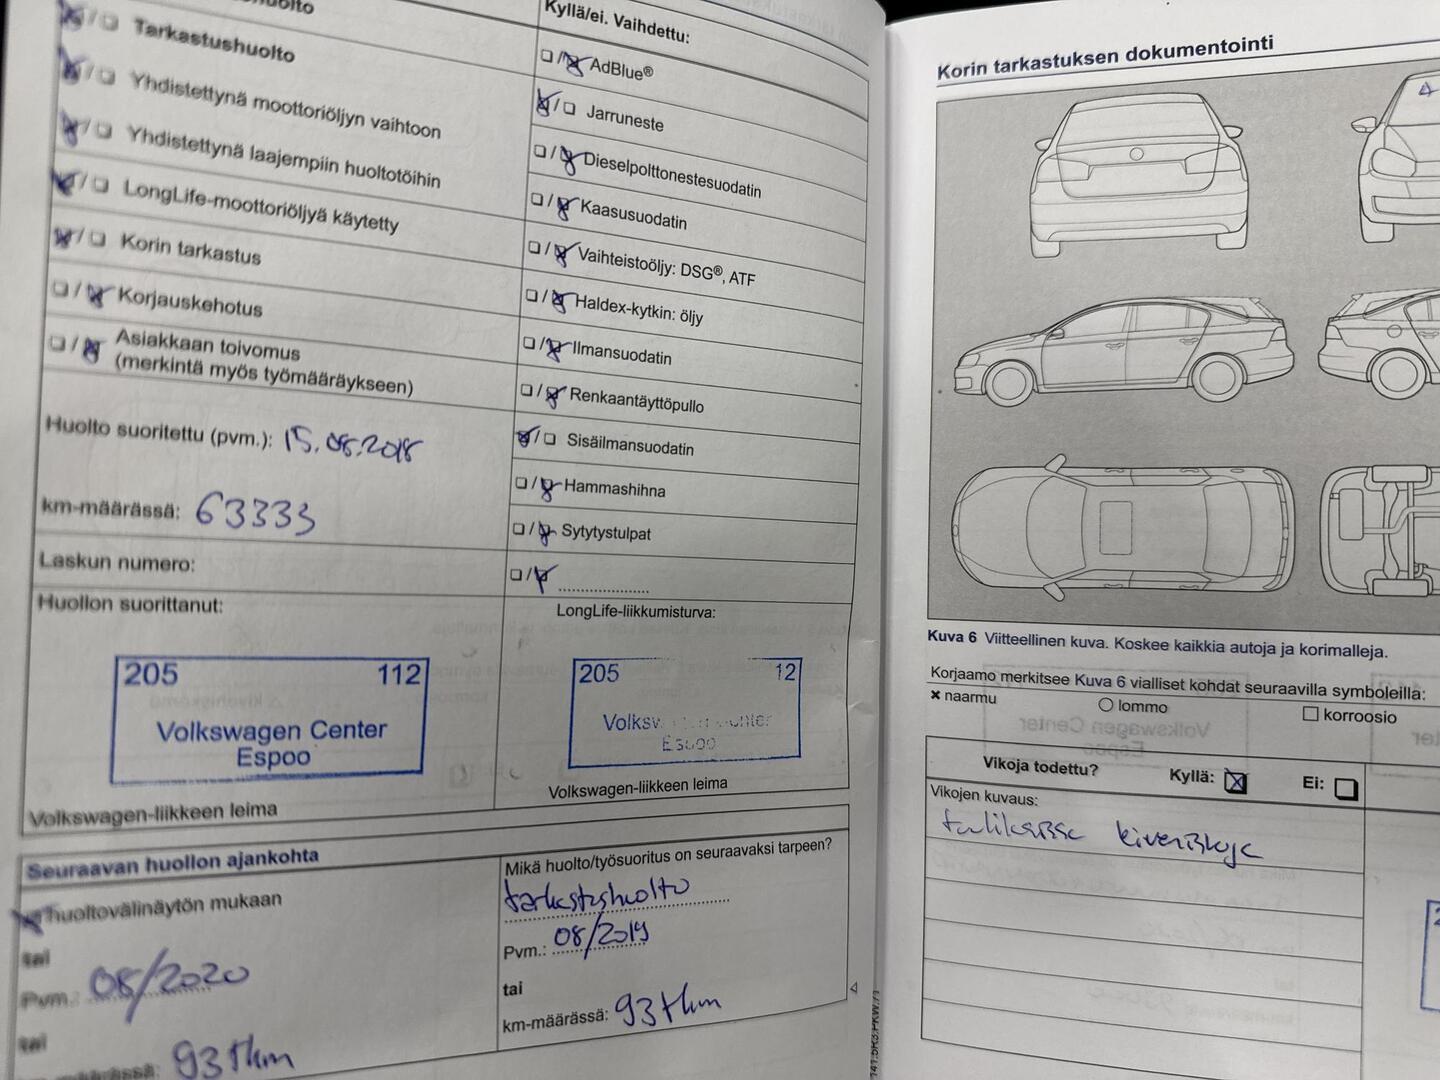 Tarkastushuolto
Yhdistettynä moottoriöljyn vaihtoon
Yhdistettynä laajempiin huoltotöihin
LongLife-moottoriöljyä käytetty
Korin tarkastus
Korjauskehotus
Asiakkaan toivomus
(merkintä myös työmääräykseen)
Huolto suoritettu (pvm.): 15.08.2018
km-määrässä: 63333
Laskun numero:
Huollon suorittanut:
205 112
Volkswagen Center
Espoo
Volkswagen-liikkeen leima
Kyllä/ei. Vaihdettu:
AdBlue®
Jarruneste
Dieselpolttonestesuodatin
Kaasusuodatin
Vaihteistoöljy: DSG®, ATF
Haldex-kytkin: öljy
Ilmansuodatin
Renkaantäyttöpullo
Sisäilmansuodatin
Hammashihna
Sytytystulpat
LongLife-liikkumisturva:
205 12
Espoo
Volkswagen-liikkeen leima
Seuraavan huollon ajankohta
huoltovälinäytön mukaan
tai
Pvm.: 08/2020
tai
km-määrässä: 93 tkm
Mikä huolto/työsuoritus on seuraavaksi tarpeen?
tarkastushuolto
Pvm.: 08/2019
tai
km-määrässä: 93 tkm
Korin tarkastuksen dokumentointi
Kuva 6 Viitteellinen kuva. Koskee kaikkia autoja ja korimalleja.
Korjaamo merkitsee Kuva 6 vialliset kohdat seuraavilla symboleilla:
naarmu lommo korroosio
Vikoja todettu? Kyllä: Ei:
Vikojen kuvaus:
kiveniskuja